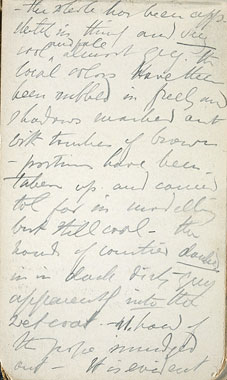 - the whole has been app
thinly and very
cool and pale, almost grey. the
local colors have then
been rubbed in freely and
shadows marked out
with touches of brown
- portions have been
taken up and carried
too far in modelling
but still cool - the
hands of counties dashed
in in dark dirty grey
apparently into the
wet coat - head of
the page smudged
out - It is evident